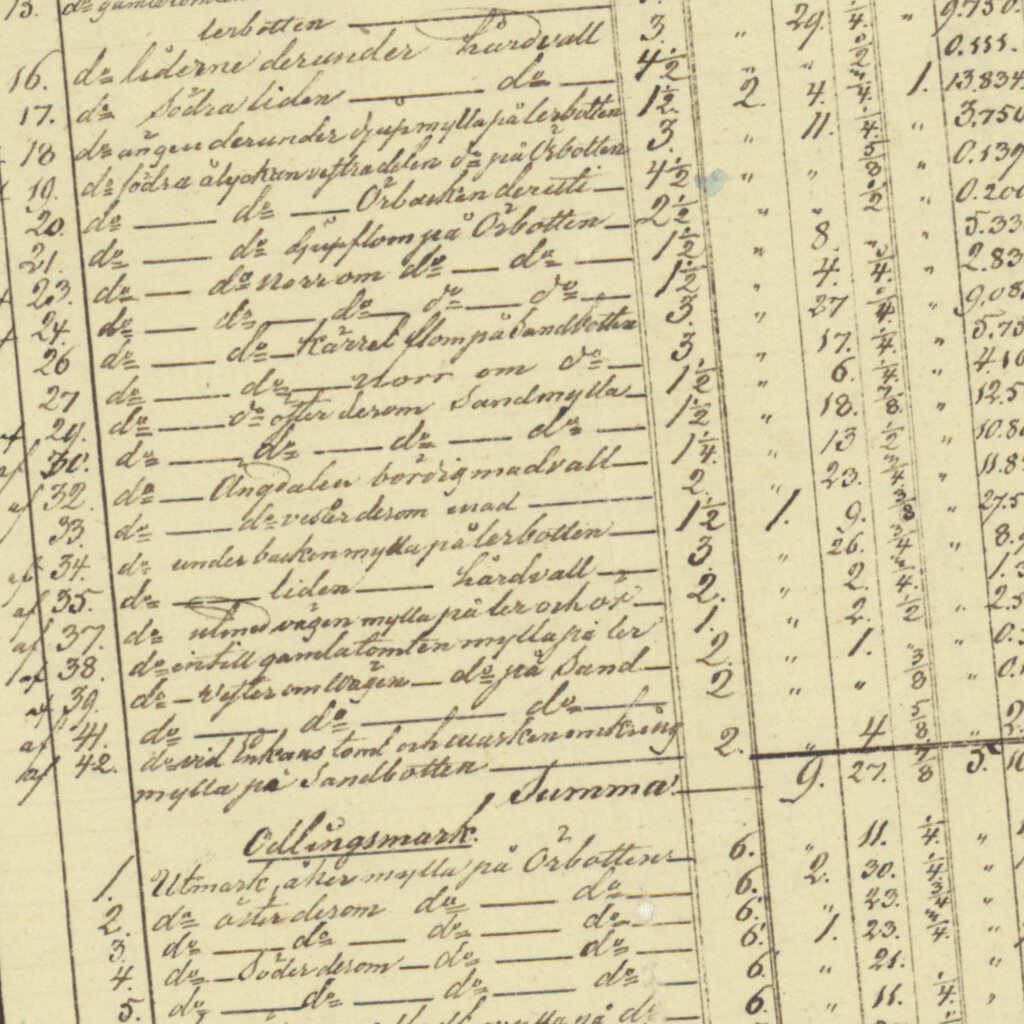 15. do gamla tomten
lerbotten 3. " 29. 1/4. " 9.750.
16. do liderne derunder hårdvall 4 1/2 " " 1/2 0.111.
17. do Södra liden — do — 1 1/2. 2. 4. 3/4. 1. 13.834
18 do ängen derunder djup mylla på lerbotten 3. " 11. 1/4. " 3.750
19. do södra älyckan vestra delen do på Örbotten 4 1/2 " " 5/8 " 0.139
20. do — do — Örbacken deruti — 2 1/2 " " 1/2 " 0.200
21. do — do djupflom på Örbotten — 1 1/2 " 8. " " 5.33
23. do — do Norr om do — do — 1 1/2 " 4. 3/4. " 2.83
24. do — do — do — do — do — 3. " 27 1/4 " 9.08
26 do — do — Kärret flom på Sandbotten 3. " 17. 1/4. " 5.75
27 do — do — Norr om do — 1 1/2 " 6. 1/4. " 4.16
29. do — do öster derom Sandmylla — 1 1/2 " 18. 7/8. " 12.5
30. do — do — do — do — 1 1/4. " 13 1/2 " 10.80
32. do — Ängdalen bördig madvall — 2. " 23. 3/4 " 11.8
33. do — do vester derom mad — 1 1/2 1. 9. 3/8 " 27.5
34. do under backen mylla på lerbotten — 3. " 26. 3/4 " 8.
35. do — liden — hårdvall — 2. " 2. 3/4. 1.3
37. do utmed vägen mylla på ler och ör — 1. " 2. 1/2 " 2.5
38. do intill gamla tomten mylla på ler 2. " 1. " 0.
39. do — Vester om Vägen — do på Sand — 2 " " 3/8 " 0.
41. do — do — do — 2. " 4 5/8 " 2.
42. do vid Enkans tomt och marken omkring
mylla på Sandbotten —
Summa. — 9. 27. 7/8 5. 10
Odlingsmark.
1. Utmark, åker mylla på Örbotten — 6. " 11. 1/4. "
2. do öster derom do — do — 6. 2. 30. 1/4. "
3. do — do — do — do — 6. " 23. 3/4 "
4. do — Söder derom — do — do — 6. 1. 23. 3/4. "
5. do — do — do — do — 6. " 21. "
mylla på do — 6. " 11. 1/4. "